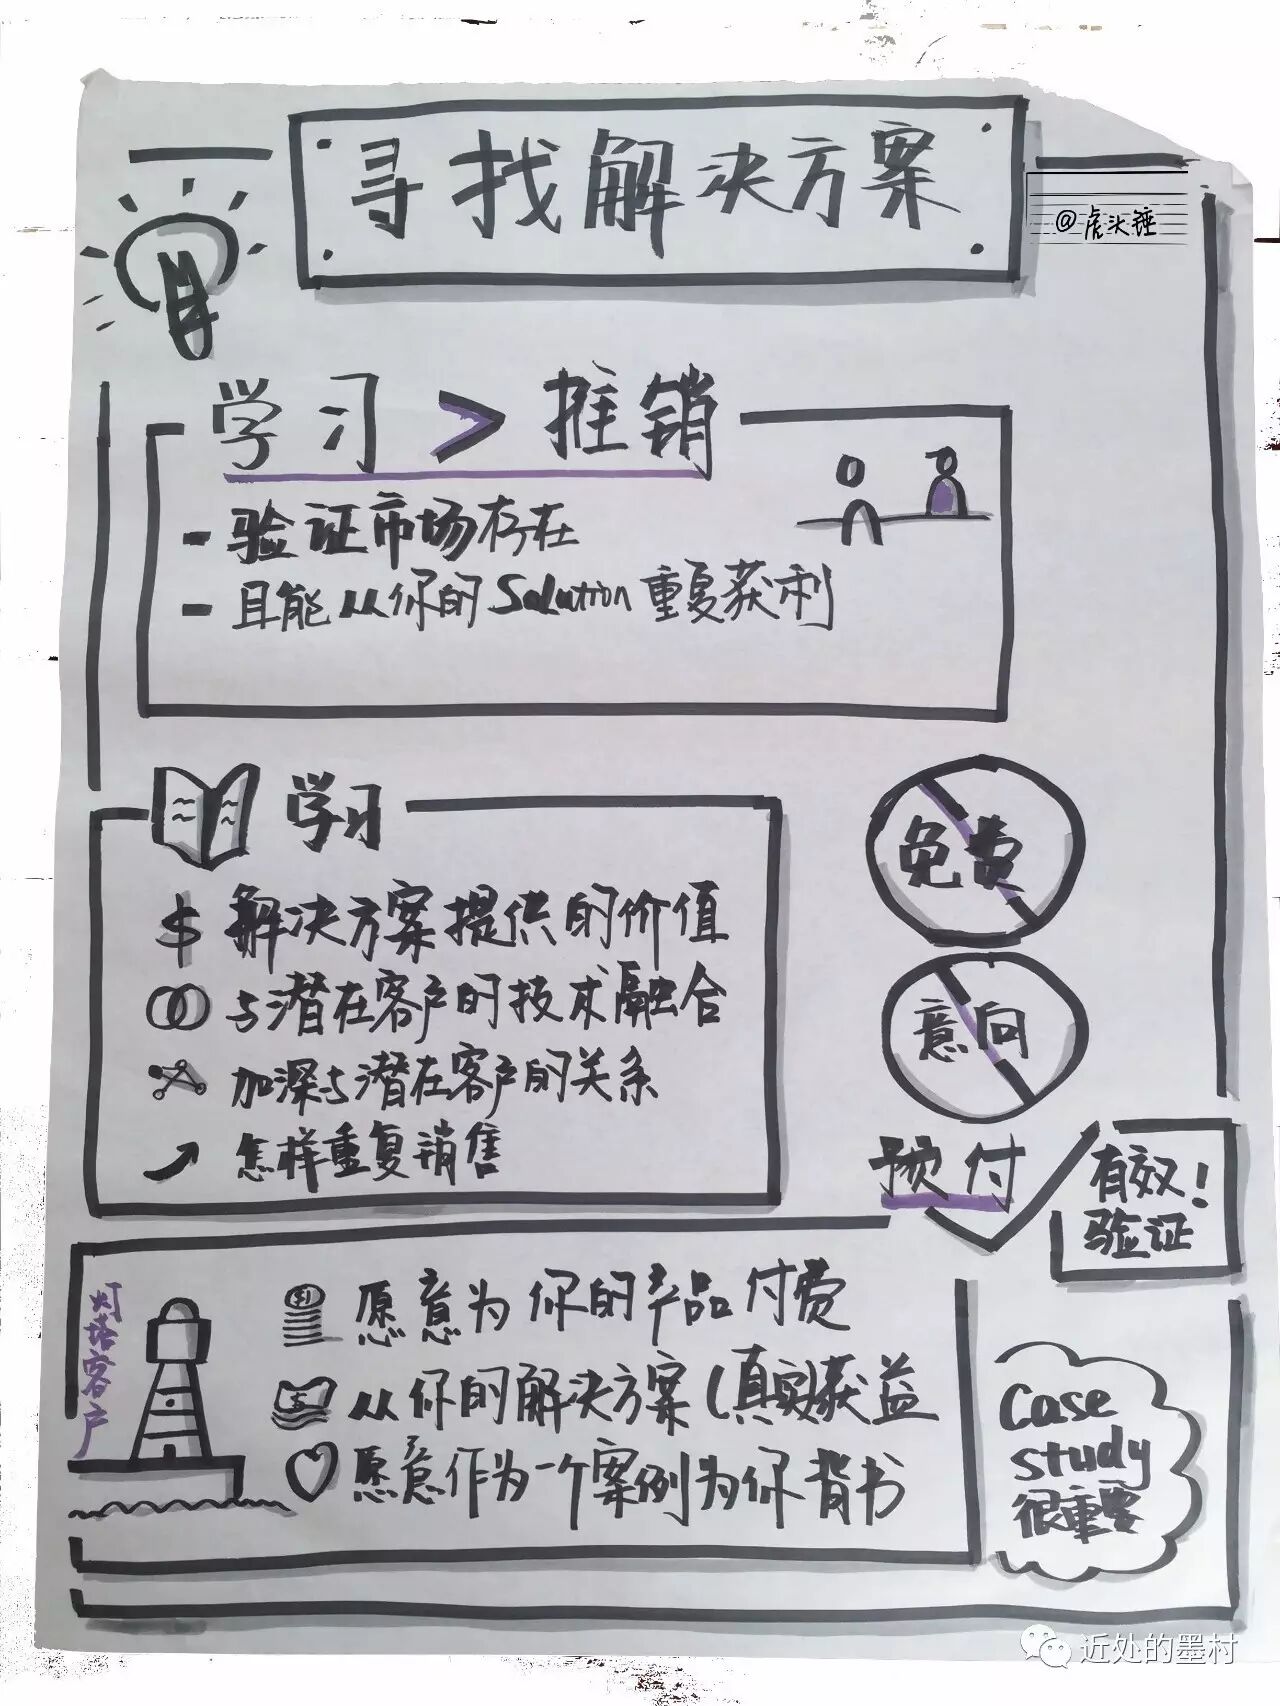 寻找解决方案
@虎头锤
学习 > 推销
- 验证市场存在
- 且能从你的Solution重复获利
学习
$ 解决方案提供的价值
与潜在客户的技术融合
加深与潜在客户的关系
怎样重复销售
免费
意向
预付
有效!
验证
灯塔客户
愿意为你的产品付费
从你的解决方案(真实)获益
愿意作为一个案例为你背书
Case
study
很重要
近处的墨村